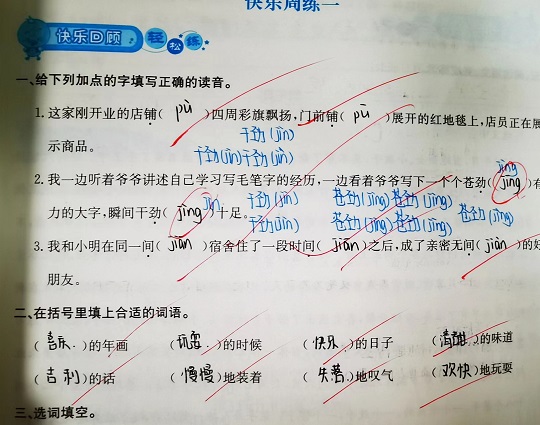 快乐周练一
快乐回顾 轻松练
一、给下列加点的字填写正确的读音。
1. 这家刚开业的店铺( pù )四周彩旗飘扬,门前铺( pù )展开的红地毯上,店员正在展
干劲(jìn)
示商品。 干劲(jìn)干劲(jìn)
jìng
2. 我一边听着爷爷讲述自己学习写毛笔字的经历,一边看着爷爷写下一个个苍劲( jìng )有
jìn 干劲(jìn) 苍劲(jìng)苍劲(jìng)
力的大字,瞬间干劲( jìng )十足。 干劲(jìn) 苍劲(jìng)苍劲(jìng) 苍劲(jìng)
3. 我和小明在同一间( jiān )宿舍住了一段时间( jiān )之后,成了亲密无间( jiàn )的好
朋友。
二、在括号里填上合适的词语。
( 喜庆 )的年画 ( 玩雪 )的时候 ( 快乐 )的日子 ( 清甜 )的味道
( 吉利 )的话 ( 慢慢 )地装着 ( 失落 )地叹气 ( 欢快 )地玩耍
三、选词填空。